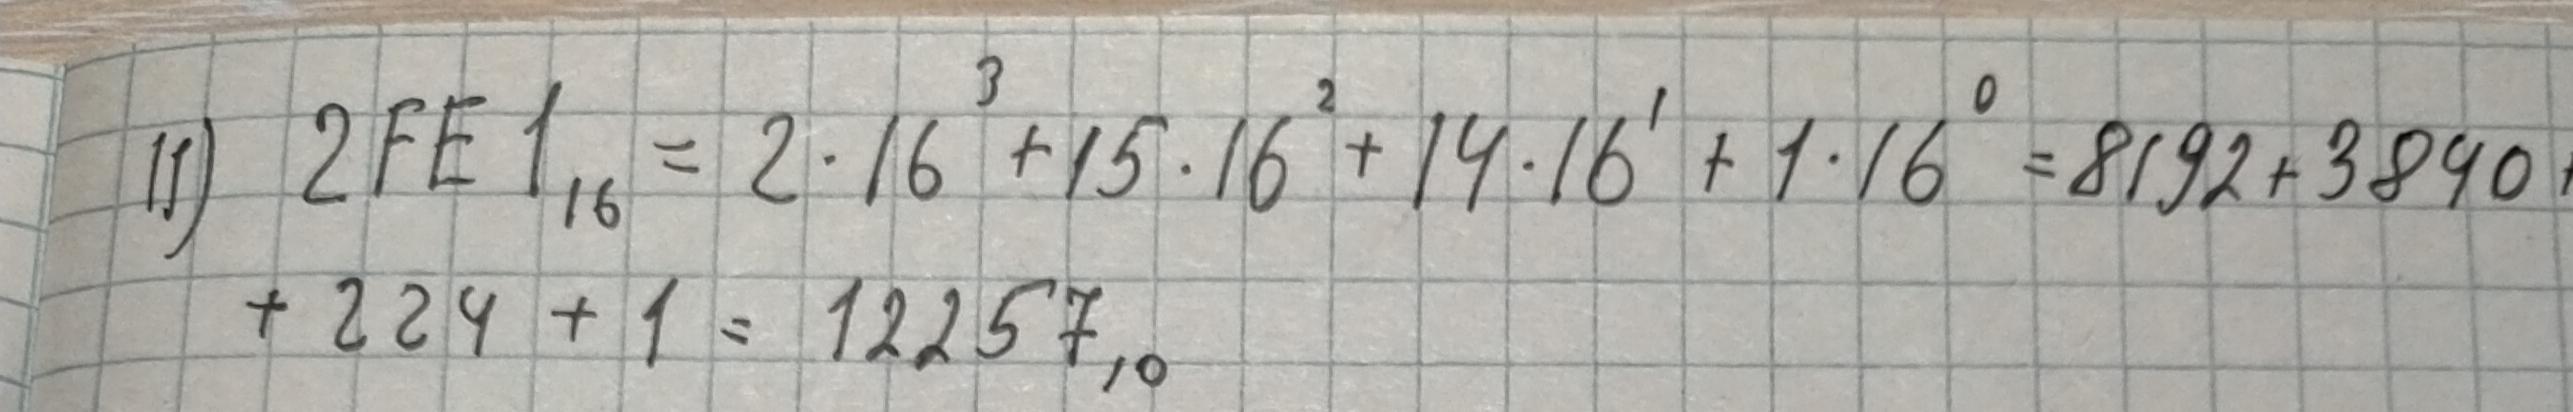 11) 2FE1₁₆ = 2·16³ + 15·16² + 14·16¹ + 1·16⁰ = 8192 + 3840 +
+ 224 + 1 = 12257₁₀